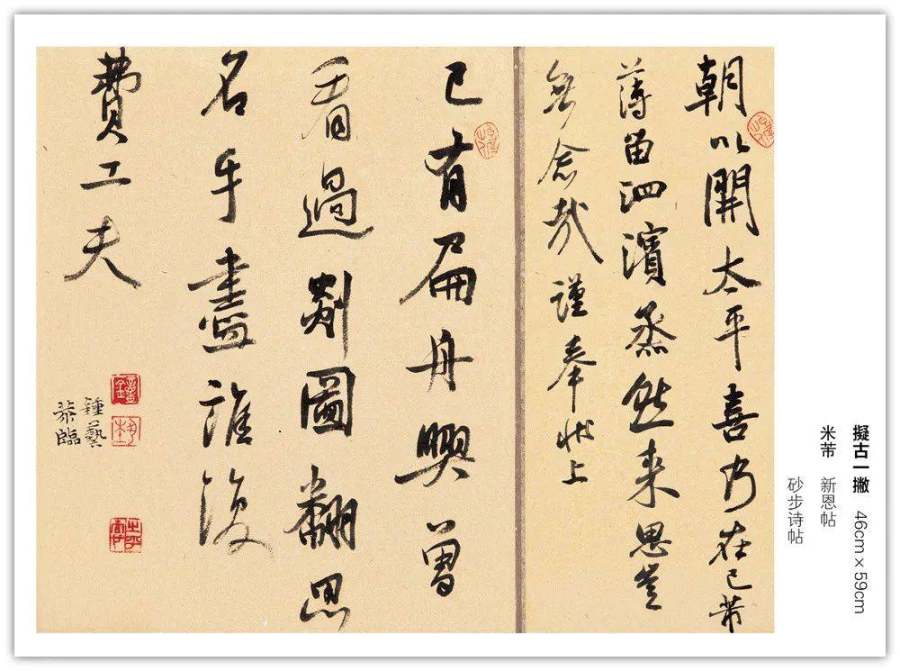 擬古一撇 46cm×59cm
米芾 新恩帖
砂步诗帖
朝以開太平喜乃在己芾
薄留泗濱蒸然来思豈
無念哉謹奉状上
已有扁舟興曾
看過剡圖翻思
名手盡誰復
費工夫
鍾藝
恭臨